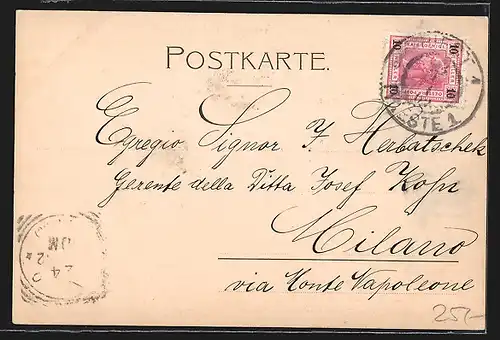 POSTKARTE.
10 10
10 10
TRIESTE 1
Egregio Signor J. Herbatschek
Gerente della Ditta Josef Kohn
Milano
via Monte Napoleone
24
2
25/-